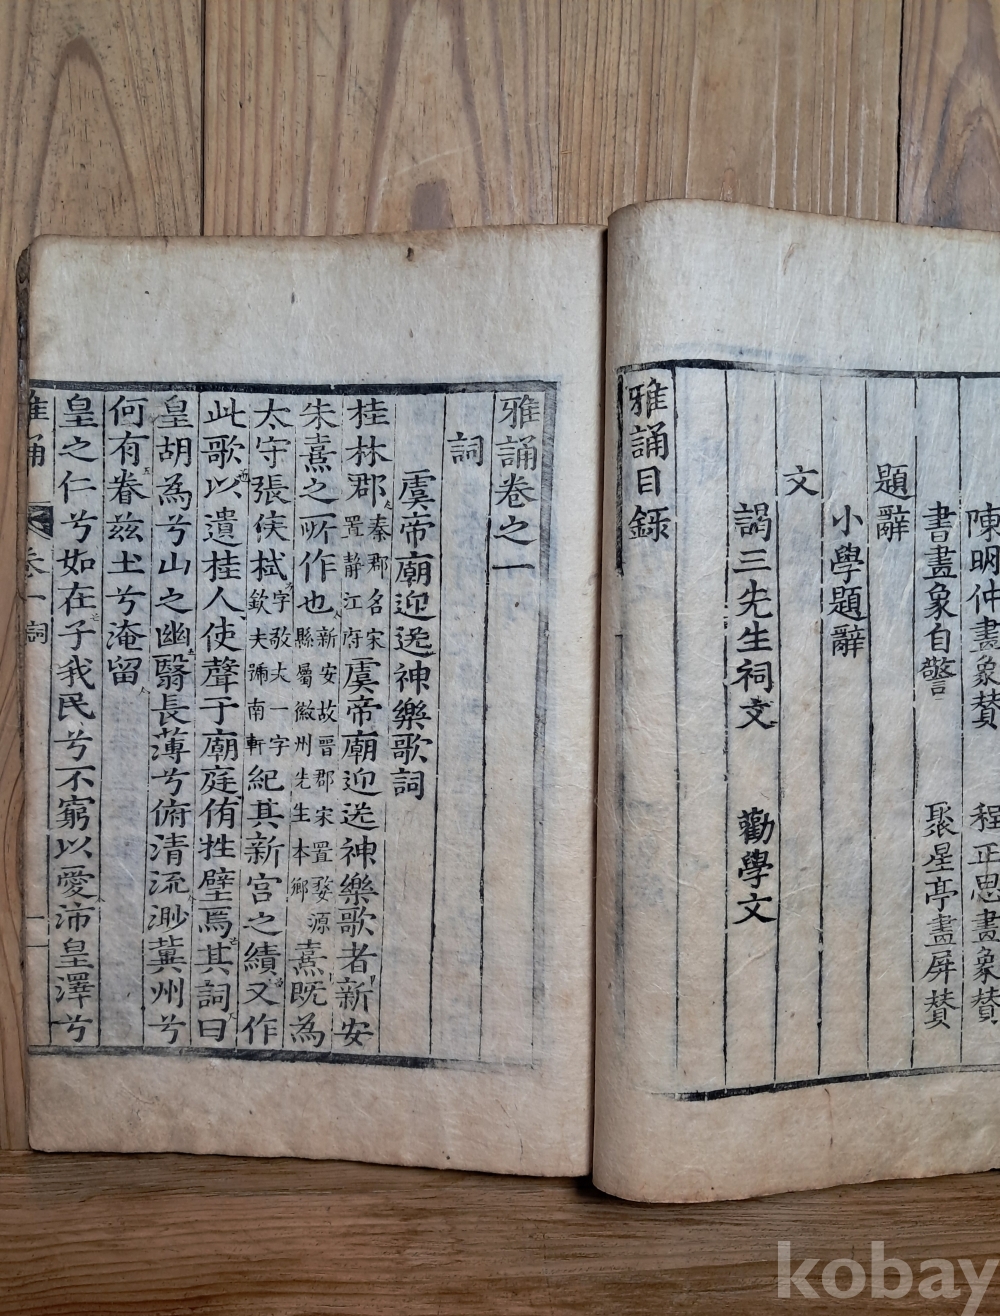 陳明仲畫象贊 程正思畫象贊
書畫象自警 聚星亭畫屛贊
題辭
小學題辭
文
謁三先生祠文 勸學文
雅誦目錄
雅誦卷之一
詞
虞帝廟迎送神樂歌詞
桂林郡秦郡名宋置靜江府虞帝廟迎送神樂歌者新安
朱熹之所作也新安故晉郡宋置婺源縣屬徽州先生本鄕熹旣爲
太守張侯栻字敬夫一字欽夫號南軒紀其新宮之績又作
此歌以遺桂人使聲于廟庭侑牲璧焉其詞曰
皇胡爲兮山之幽翳長薄兮俯淸流渺冀州兮
何有眷玆土兮淹留
皇之仁兮如在子我民兮不窮以愛沛皇澤兮
雅誦 卷一 詞 一
kobay